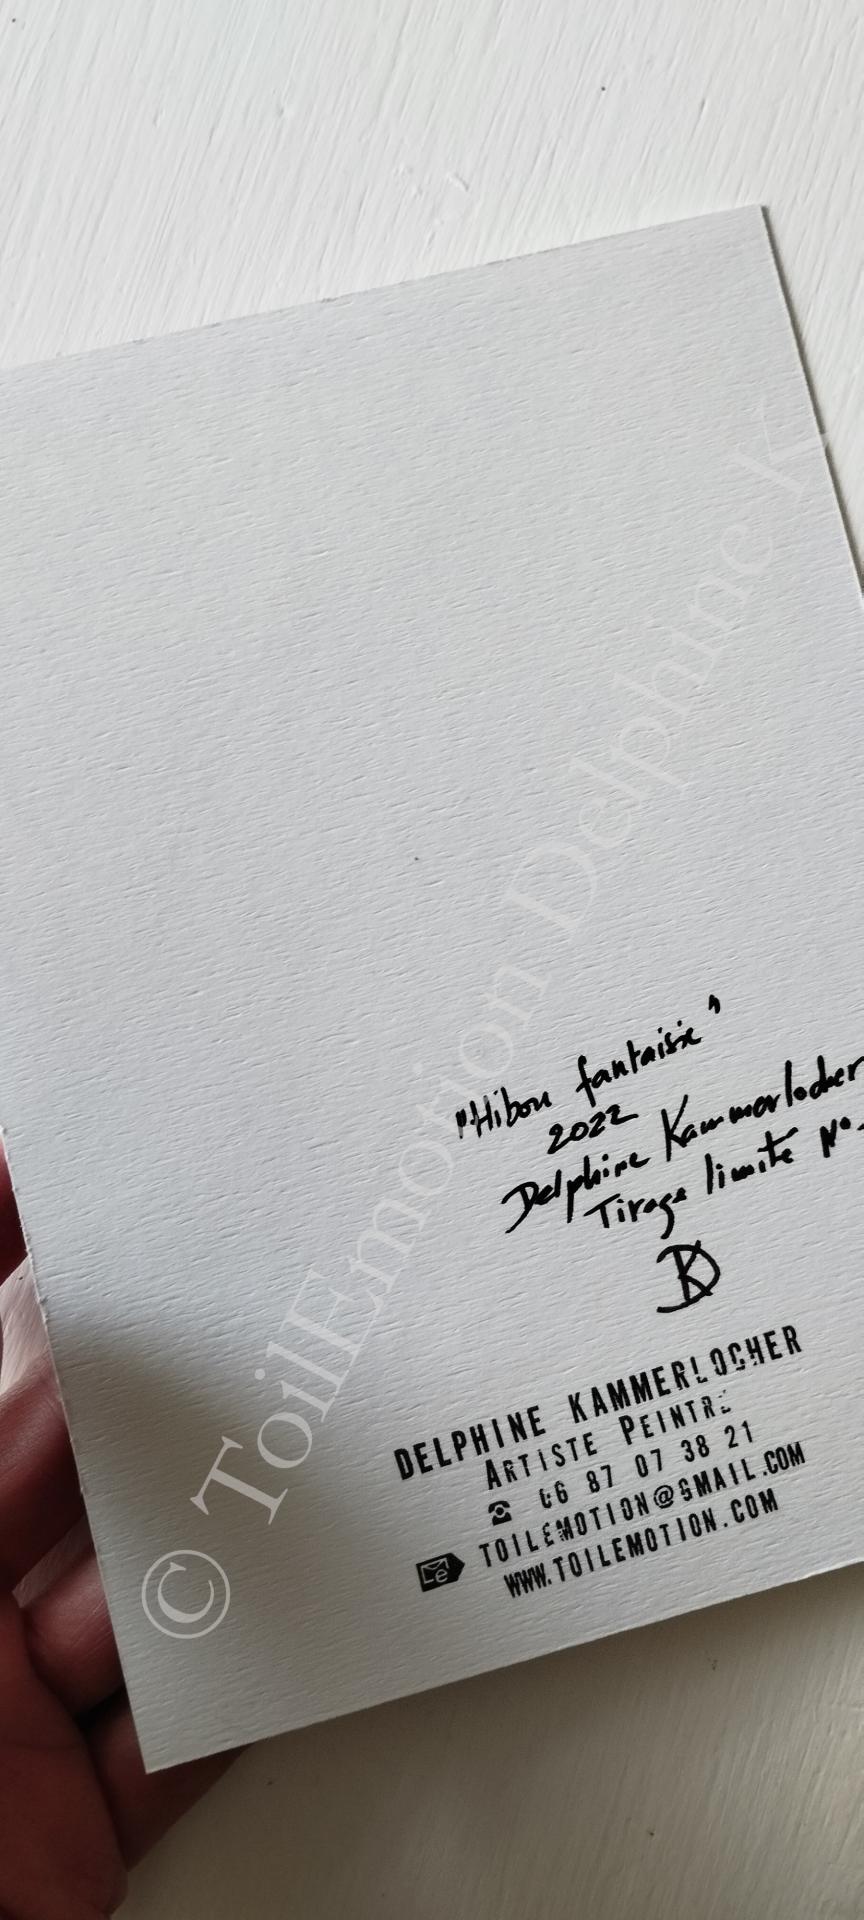 "Hibou fantaisie"
2022
Delphine Kammerlocher
Tirage limité N°
DK
DELPHINE KAMMERLOCHER
ARTISTE PEINTRE
06 87 07 38 21
TOILEMOTION@GMAIL.COM
WWW.TOILEMOTION.COM
© ToilEmotion Delphine K